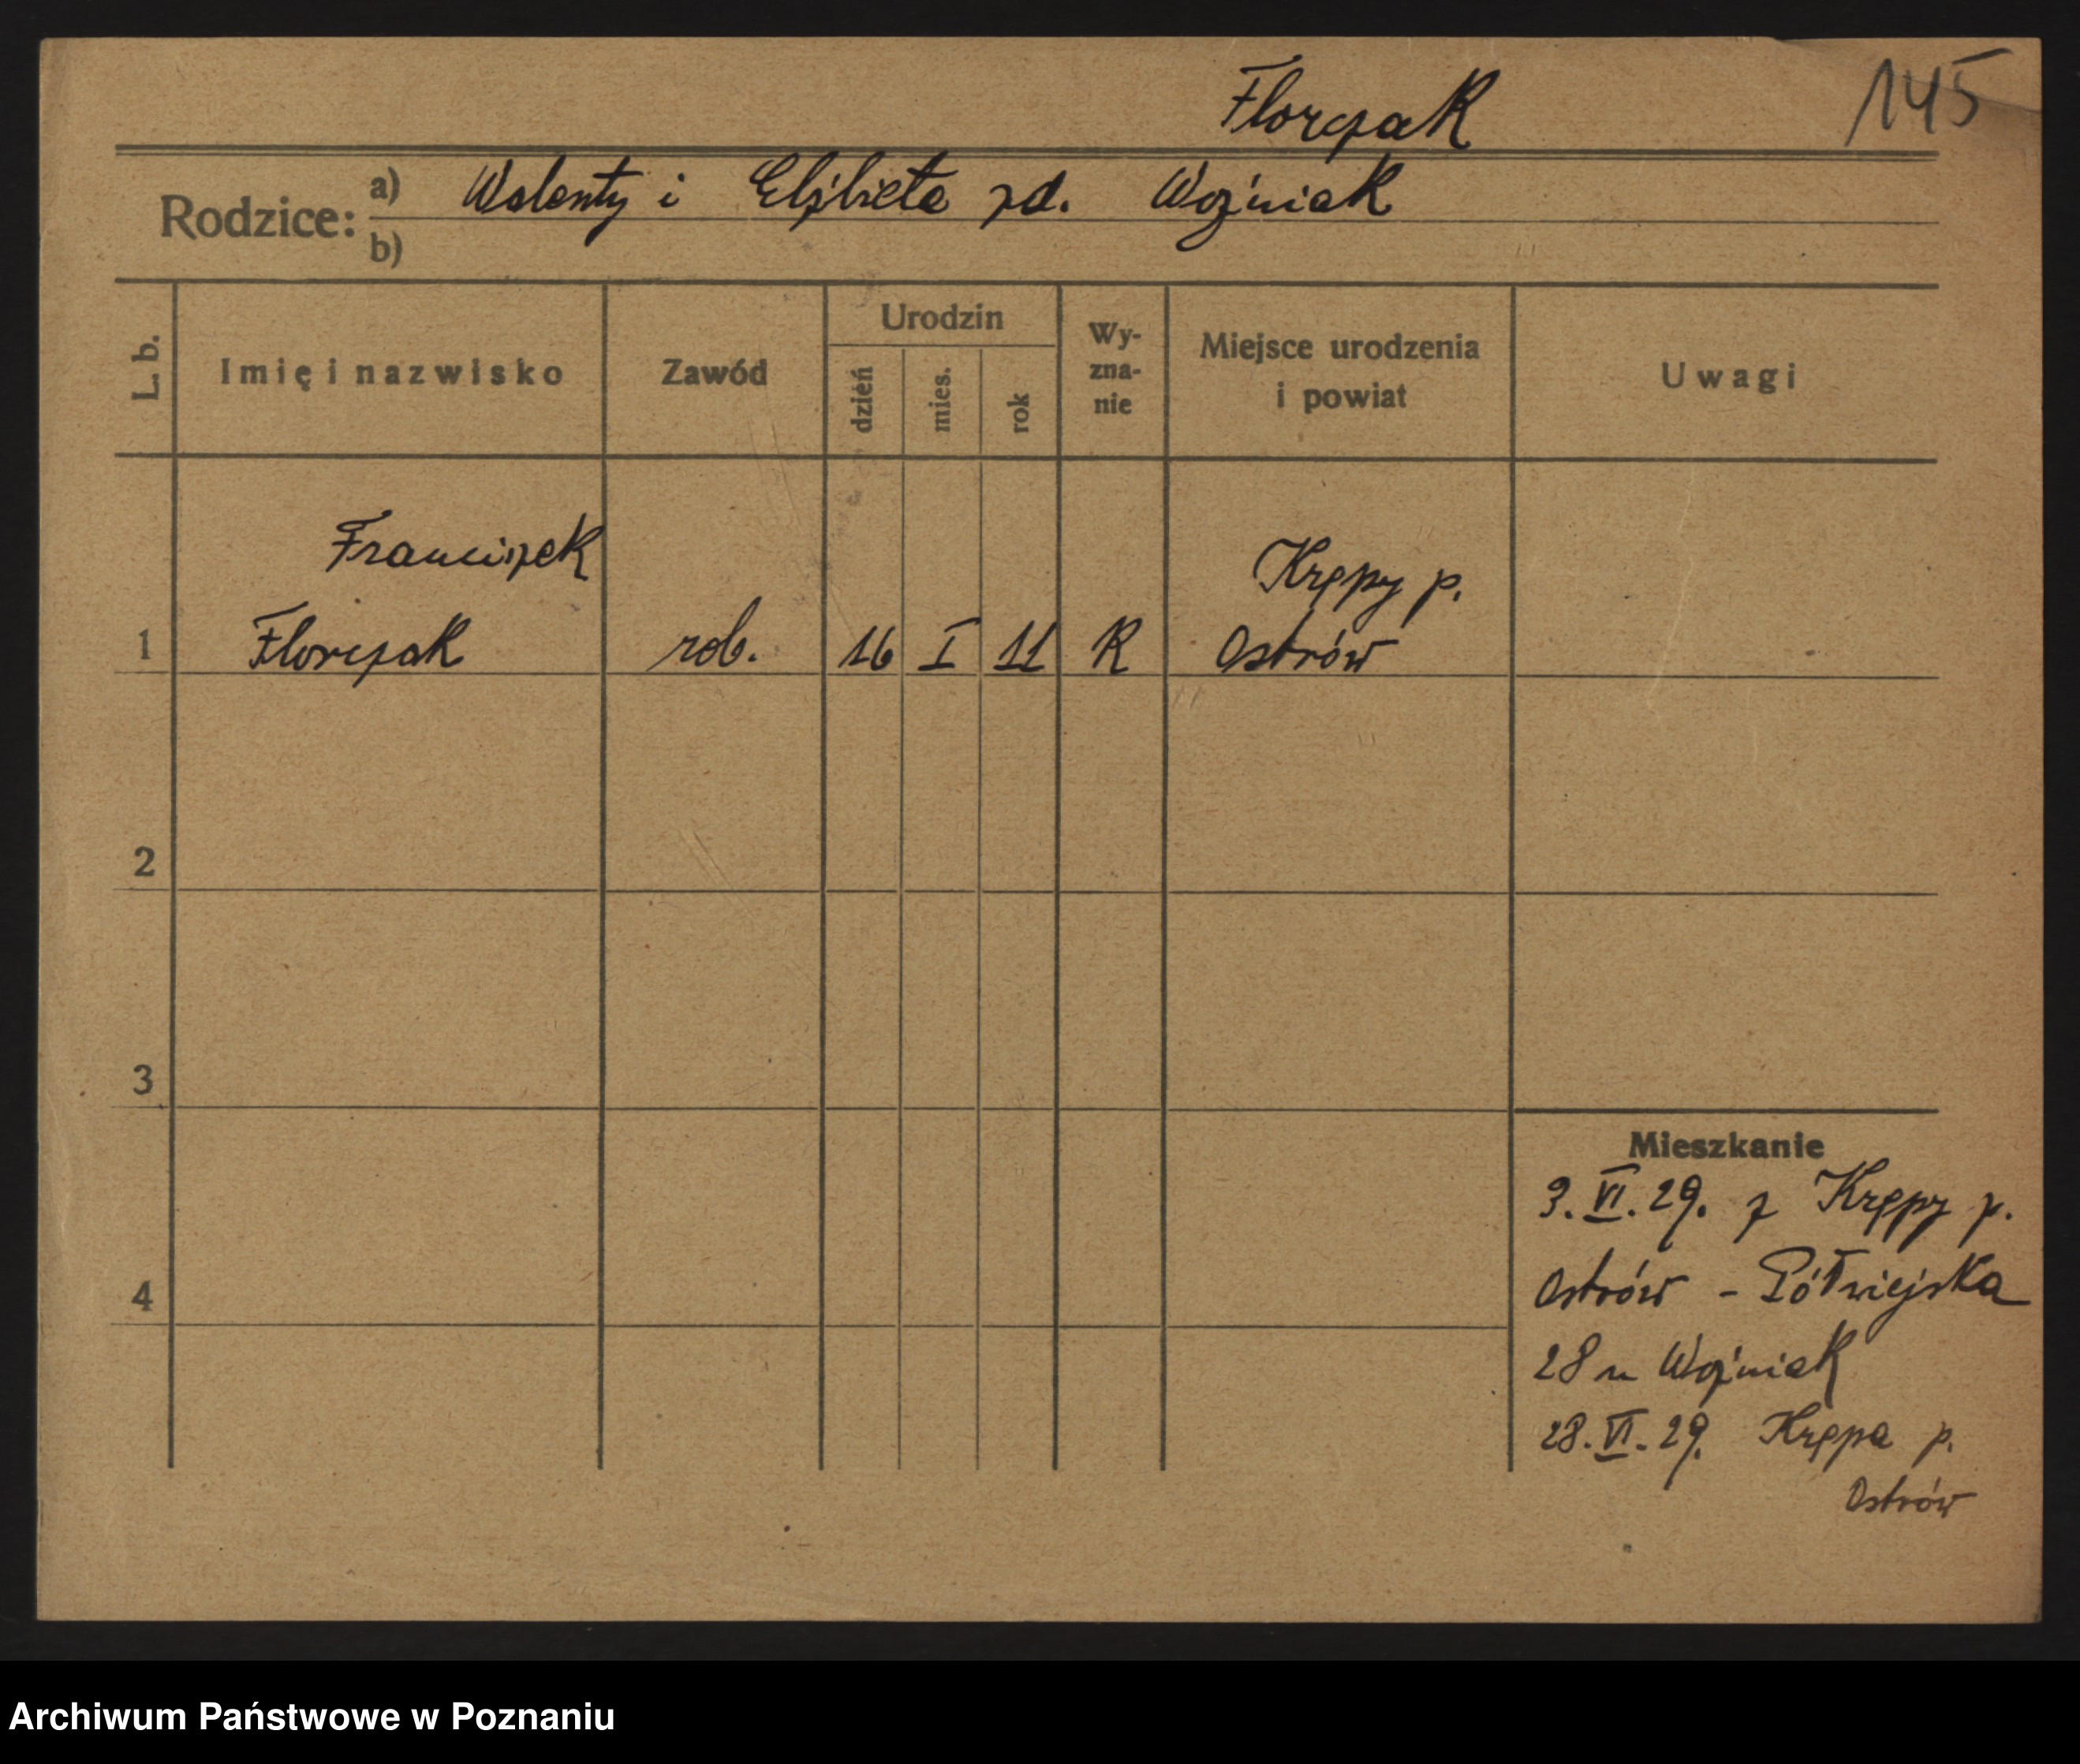 Florczak
145
Rodzice:
a) Walenty i Elżbieta zd. Woźniak
b)
L. b.
Imię i nazwisko
Zawód
Urodzin
dzień
mies.
rok
Wy-
zna-
nie
Miejsce urodzenia
i powiat
Uwagi
Franciszek
Krępy p.
1 Florczak rob. 16 I 11 K Ostrów
2
3
Mieszkanie
3. VI. 29. z Krępy p.
Ostrów - Półwiejska
4
28 u Woźniak
28. VI. 29. Krępa p.
Ostrów
Archiwum Państwowe w Poznaniu